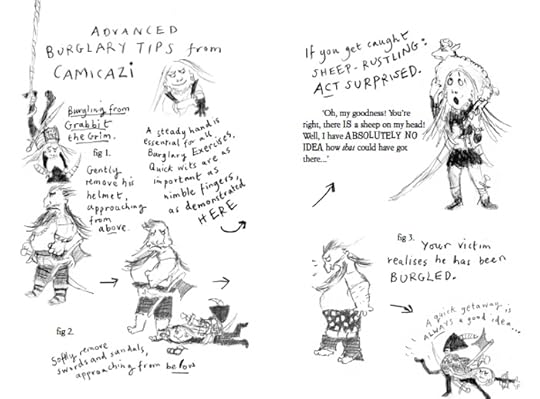 ADVANCED
BURGLARY TIPS from
CAMICAZI
Burgling from
Grabbit
the Grim.
fig 1.
Gently
remove his
helmet,
approaching
from
above.
A steady hand is
essential for all
Burglary Exercises,
Quick wits are as
important as
nimble fingers,
as demonstrated
HERE
fig 2.
Softly remove
swords and sandals,
approaching from below
If you get caught
SHEEP-RUSTLING:
ACT SURPRISED.
'Oh, my goodness! You're
right, there IS a sheep on my head!
Well, I have ABSOLUTELY NO
IDEA how this could have got
there...'
fig 3.
Your victim
realises he has been
BURGLED.
A quick getaway is
ALWAYS a good idea...